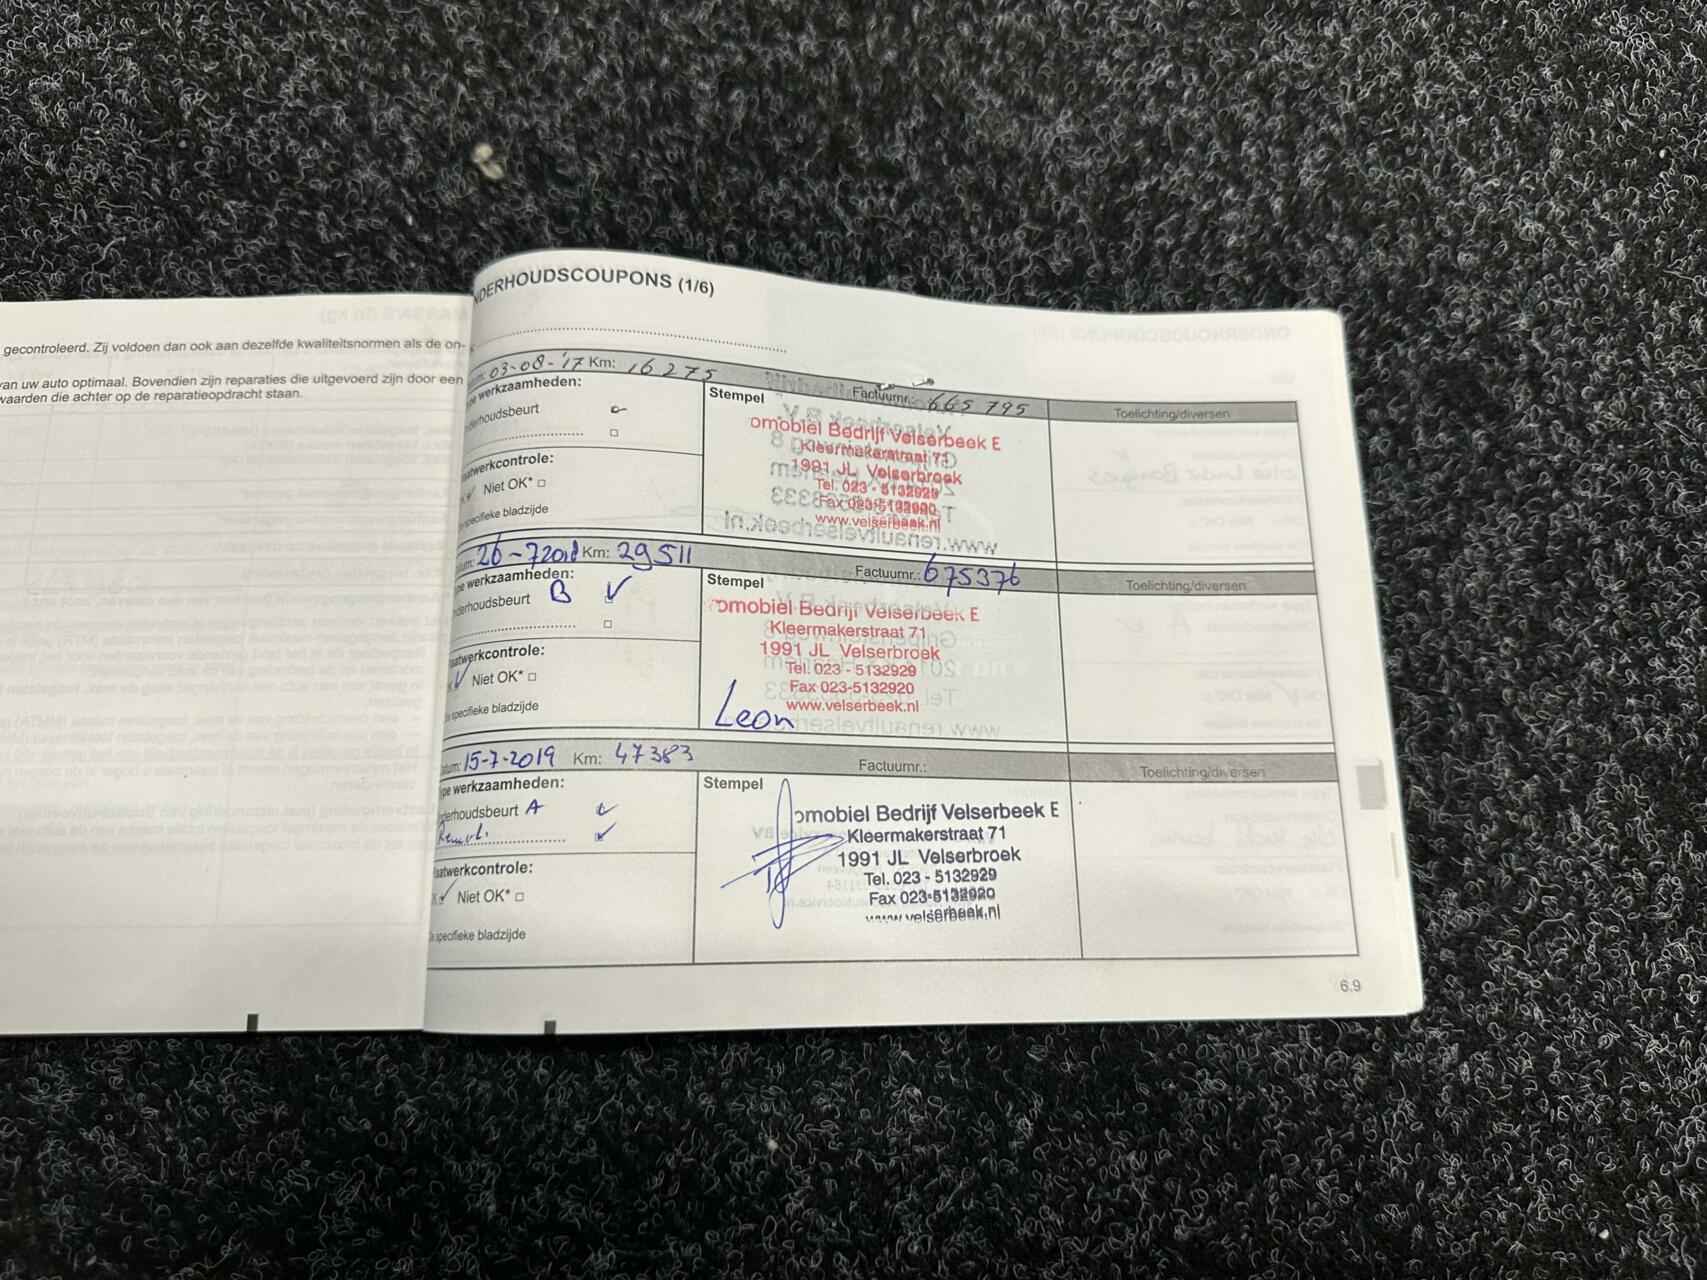 gecontroleerd. Zij voldoen dan ook aan dezelfde kwaliteitsnormen als de on-
van uw auto optimaal. Bovendien zijn reparaties die uitgevoerd zijn door een
waarden die achter op de reparatieopdracht staan.
NDERHOUDSCOUPONS (1/6)
03-08-'17 Km: 16275 Factuurnr.: 665795
werkzaamheden:
Stempel
Toelichting/diversen
derhoudsbeurt
omobiel Bedrijf Velserbeek E
Kleermakerstraat 71
1991 JL Velserbroek
Tel. 023 - 5132929
Fax 023-5132920
www.velserbeek.nl
aatwerkcontrole:
Niet OK*
specifieke bladzijde
26-7 2018 Km: 29511 Factuurnr.: 675376
pe werkzaamheden:
Stempel
Toelichting/diversen
derhoudsbeurt B
omobiel Bedrijf Velserbeek E
Kleermakerstraat 71
1991 JL Velserbroek
Tel. 023 - 5132929
Fax 023-5132920
www.velserbeek.nl
Leon
aatwerkcontrole:
Niet OK*
specifieke bladzijde
tum: 15-7-2019 Km: 47383 Factuurnr.:
pe werkzaamheden:
Stempel
Toelichting/diversen
derhoudsbeurt A
omobiel Bedrijf Velserbeek E
Kleermakerstraat 71
1991 JL Velserbroek
Tel. 023 - 5132929
Fax 023-5132920
www.velserbeek.nl
aatwerkcontrole:
Niet OK*
specifieke bladzijde
6.9